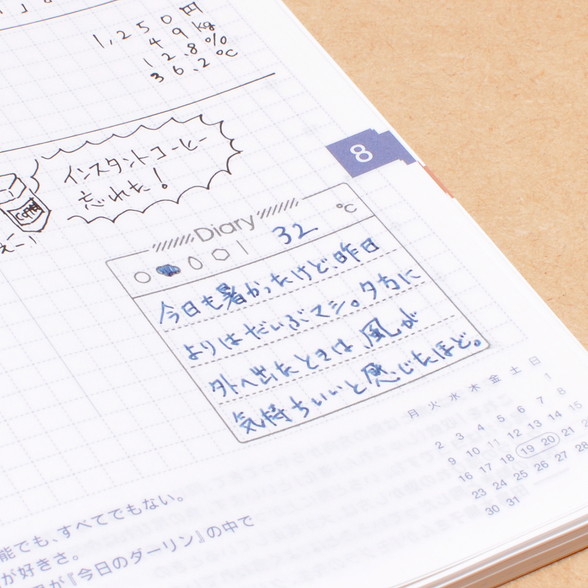 1,250円
49kg
12.8%
36.2℃
インスタントコーヒー
忘れた!
8
Diary
32 ℃
今日も暑かったけど、昨日
よりはだいぶマシ。夕方に
外へ出たときは風が
気持ちいいと感じたほど。
月 火 水 木 金 土 日
1
2 3 4 5 6 7 8
9 10 11 12 13 14 15
16 17 18 19 20 21 22
23 24 25 26 27 28
30 31
能でも、すべてでもない。
が好きさ。
が『今日のダーリン』の中で